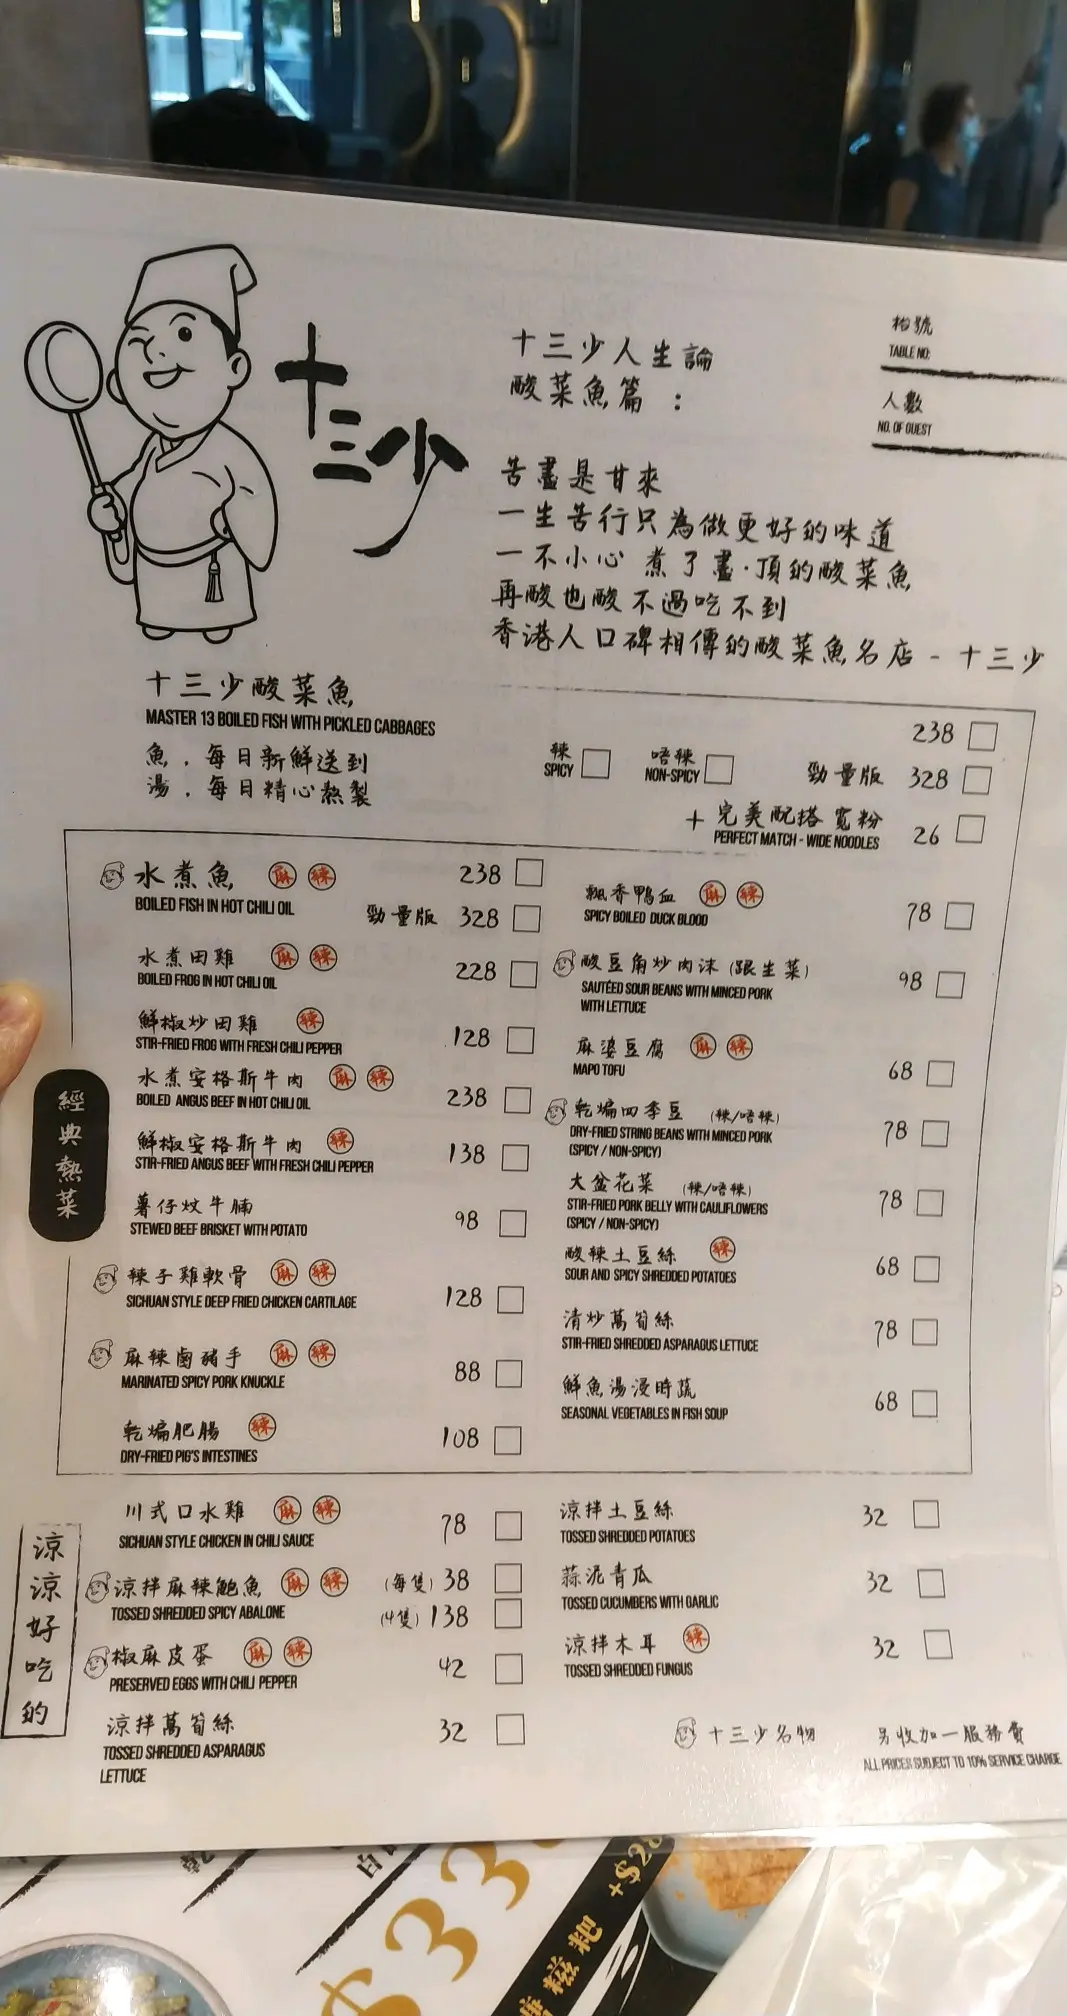 十三少
十三少人生論
酸菜魚篇：
枱號
TABLE NO:
人數
NO. OF GUEST
苦盡是甘來
一生苦行只為做更好的味道
一不小心 煮了盡·頂的酸菜魚
再酸也酸不過吃不到
香港人口碑相傳的酸菜魚名店 - 十三少
十三少酸菜魚
MASTER 13 BOILED FISH WITH PICKLED CABBAGES
魚，每日新鮮送到
湯，每日精心熬製
238
辣 SPICY
唔辣 NON-SPICY
勁量版 328
+ 完美配搭寬粉 26
PERFECT MATCH - WIDE NOODLES
經典熱菜
水煮魚 麻 辣 238
BOILED FISH IN HOT CHILI OIL
勁量版 328
水煮田雞 麻 辣 228
BOILED FROG IN HOT CHILI OIL
鮮椒炒田雞 辣 128
STIR-FRIED FROG WITH FRESH CHILI PEPPER
水煮安格斯牛肉 麻 辣 238
BOILED ANGUS BEEF IN HOT CHILI OIL
鮮椒安格斯牛肉 辣 138
STIR-FRIED ANGUS BEEF WITH FRESH CHILI PEPPER
薯仔炆牛腩 98
STEWED BEEF BRISKET WITH POTATO
辣子雞軟骨 麻 辣 128
SICHUAN STYLE DEEP FRIED CHICKEN CARTILAGE
麻辣鹵豬手 麻 辣 88
MARINATED SPICY PORK KNUCKLE
乾煸肥腸 辣 108
DRY-FRIED PIG'S INTESTINES
飄香鴨血 麻 辣 78
SPICY BOILED DUCK BLOOD
酸豆角炒肉沫 (跟生菜) 98
SAUTÉED SOUR BEANS WITH MINCED PORK
WITH LETTUCE
麻婆豆腐 麻 辣 68
MAPO TOFU
乾煸四季豆 (辣/唔辣) 78
DRY-FRIED STRING BEANS WITH MINCED PORK
(SPICY / NON-SPICY)
大盆花菜 (辣/唔辣) 78
STIR-FRIED PORK BELLY WITH CAULIFLOWERS
(SPICY / NON-SPICY)
酸辣土豆絲 辣 68
SOUR AND SPICY SHREDDED POTATOES
清炒萵筍絲 78
STIR-FRIED SHREDDED ASPARAGUS LETTUCE
鮮魚湯浸時蔬 68
SEASONAL VEGETABLES IN FISH SOUP
涼涼好吃的
川式口水雞 麻 辣 78
SICHUAN STYLE CHICKEN IN CHILI SAUCE
涼拌麻辣鮑魚 麻 辣 (每隻) 38
TOSSED SHREDDED SPICY ABALONE
(4隻) 138
椒麻皮蛋 麻 辣 42
PRESERVED EGGS WITH CHILI PEPPER
涼拌萵筍絲 32
TOSSED SHREDDED ASPARAGUS
LETTUCE
涼拌土豆絲 32
TOSSED SHREDDED POTATOES
蒜泥青瓜 32
TOSSED CUCUMBERS WITH GARLIC
涼拌木耳 辣 32
TOSSED SHREDDED FUNGUS
十三少名物
另收加一服務費
ALL PRICES SUBJECT TO 10% SERVICE CHARGE
+$28
糖糍粑